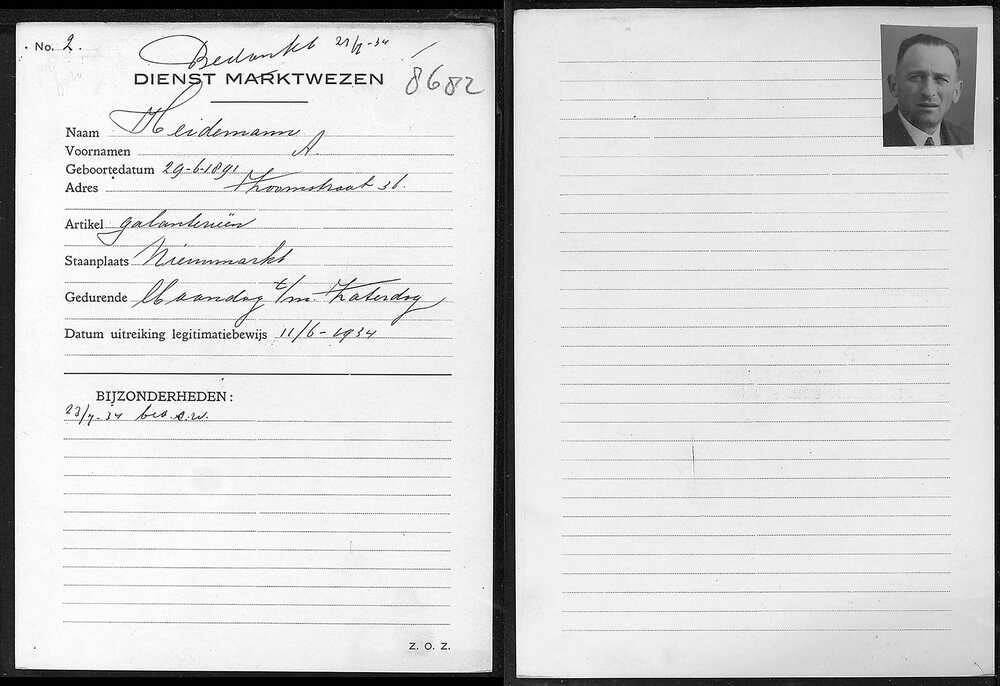 No. 2.
Bedankt 23/7-34
8682
DIENST MARKTWEZEN
Naam Heidemann
Voornamen A.
Geboortedatum 29-6-1891
Adres Zoomstraat 36.
Artikel galanteriën
Staanplaats Nieuwmarkt
Gedurende Maandag t/m. Zaterdag
Datum uitreiking legitimatiebewijs 11/6-1934
BIJZONDERHEDEN:
23/7-34
Z. O. Z.